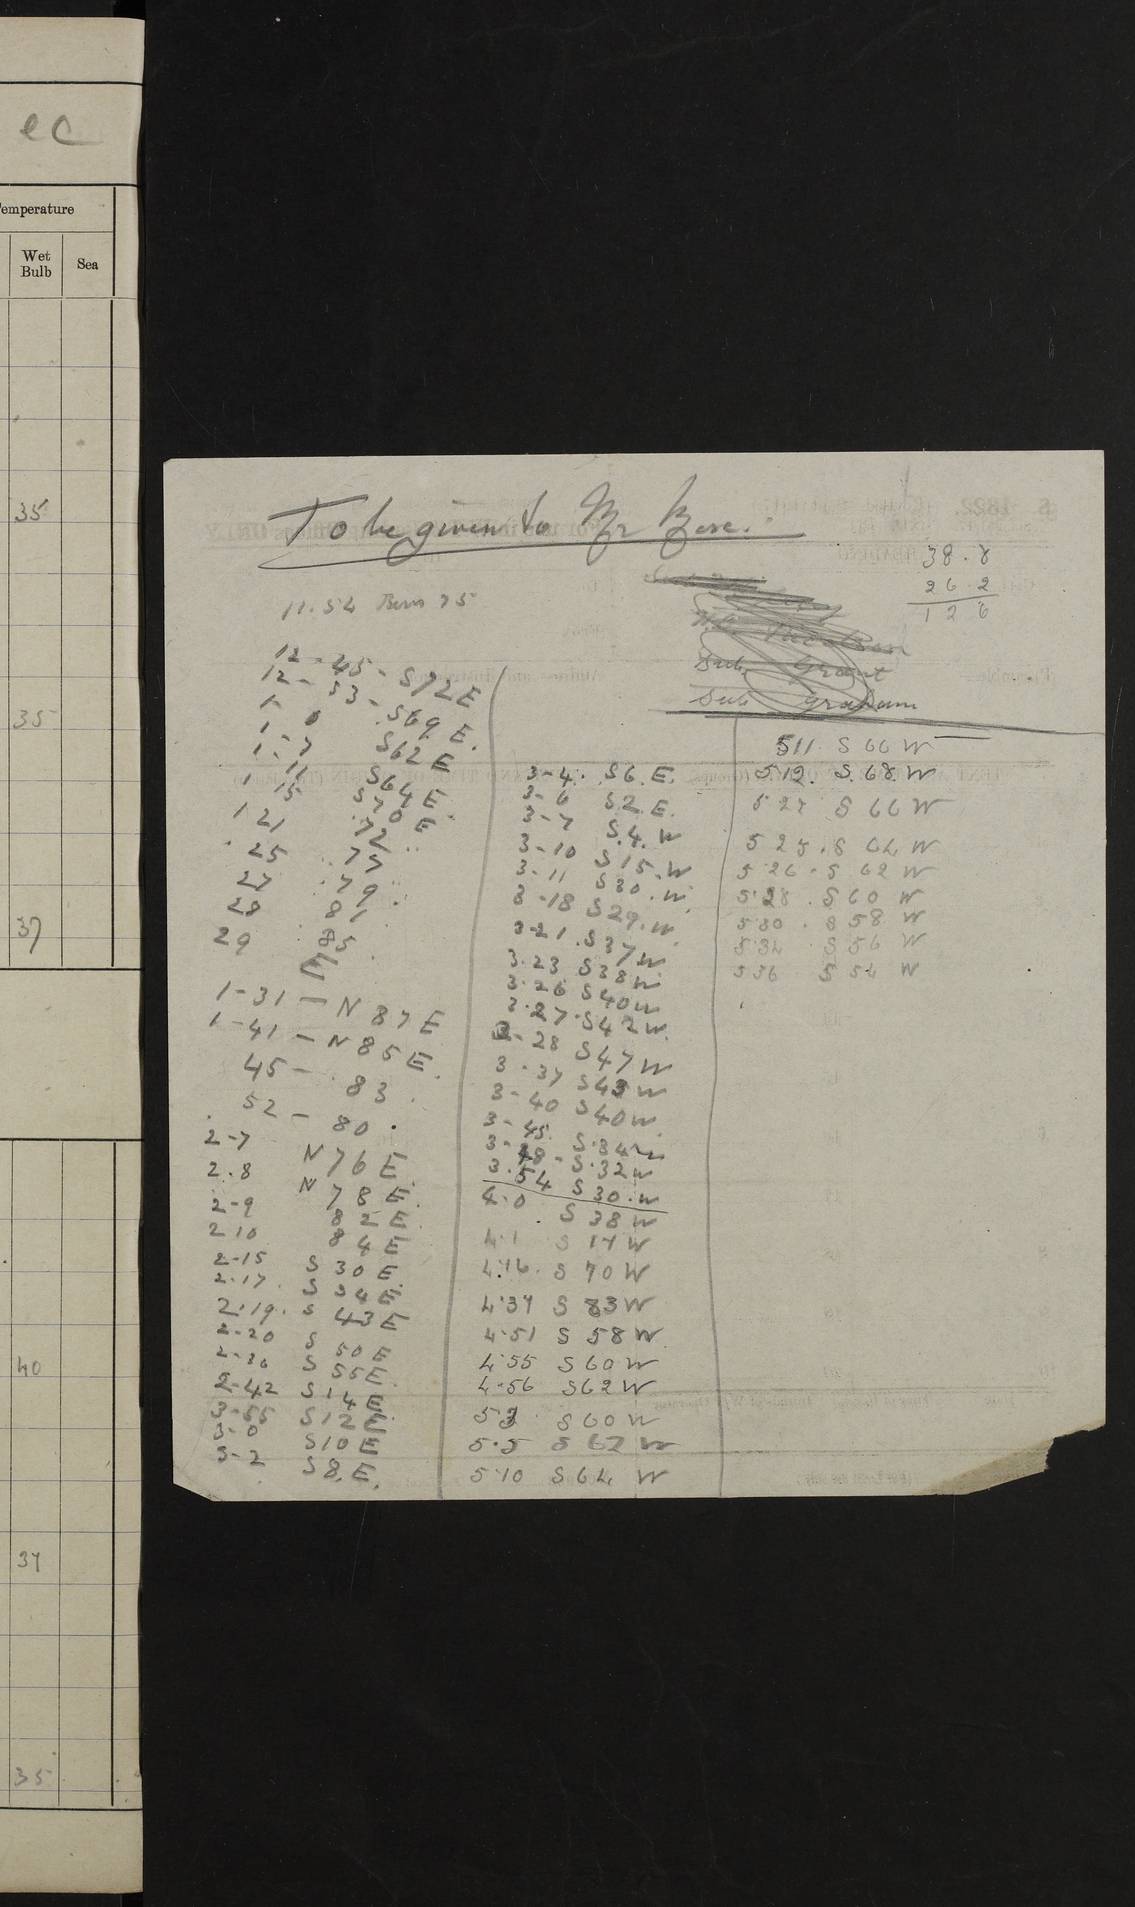 ec
Temperature
Wet Bulb
Sea
35
35
37
40
37
35
To be given to Mr
38.8
26.2
126
11.54 75
Sub Grant
Sub Graham
12-45- S72E
12-53- S69E.
S62E
1-11 S64E
1 15 S70E
1 21 72
25 77
27 79
28 81
29 85
1-31 - N87E
1-41 - N85E.
45 - 83.
52 - 80.
2-7 N76E.
2.8 N78E.
2-9 82E
2 10 84E
2-15 S30E
2.17. S34E.
2.19. S43E
2-20 S50E
2-36 S55E
2-42 S14E
3-55 S12E
3-0 S10E
3-2 S8.E.
3-4. S6.E.
3-6 S.2.E.
3-7 S.4.W
3-10 S15.W
3-11 S30.W.
3-18 S29.W.
3-21. S37W
3.23 S38W
3.26 S40W
3.27. S42W.
3-28 S47W
3-37 S43W
3-40 S40W
3-45. S.34W
3-48- S.32W
3.54 S30.W
4.0 S38W
4.1 S 14W
4.16. S 70W
4.37 S 83W
4.51 S 58W
4.55 S60W
4.56 S62W
5.3 S60W
5.5 S 62W
5.10 S64W
511 S66W
5.12. S.68.W
5.27 S66W
5 25. S 64W
5.26. S 62W
5.28. S60W
5.30. S58W
5.34 S56W
5.36 S54W